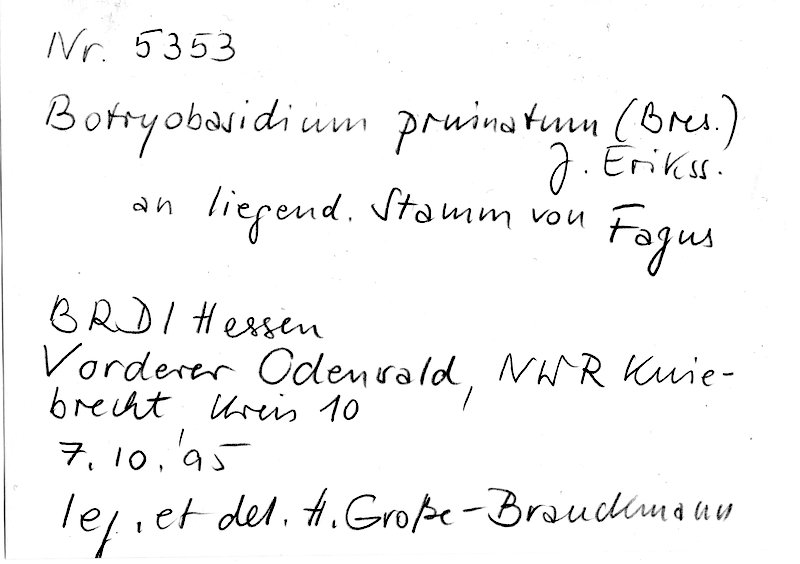 Nr. 5353
Botryobasidium pruinatum (Bres.)
J. Erikss.
an liegend. Stamm von Fagus
BRD/Hessen
Vorderer Odenwald, NWR Knie-
brecht, Kreis 10
7.10.'95
leg. et det. H. Große-Brauckmann